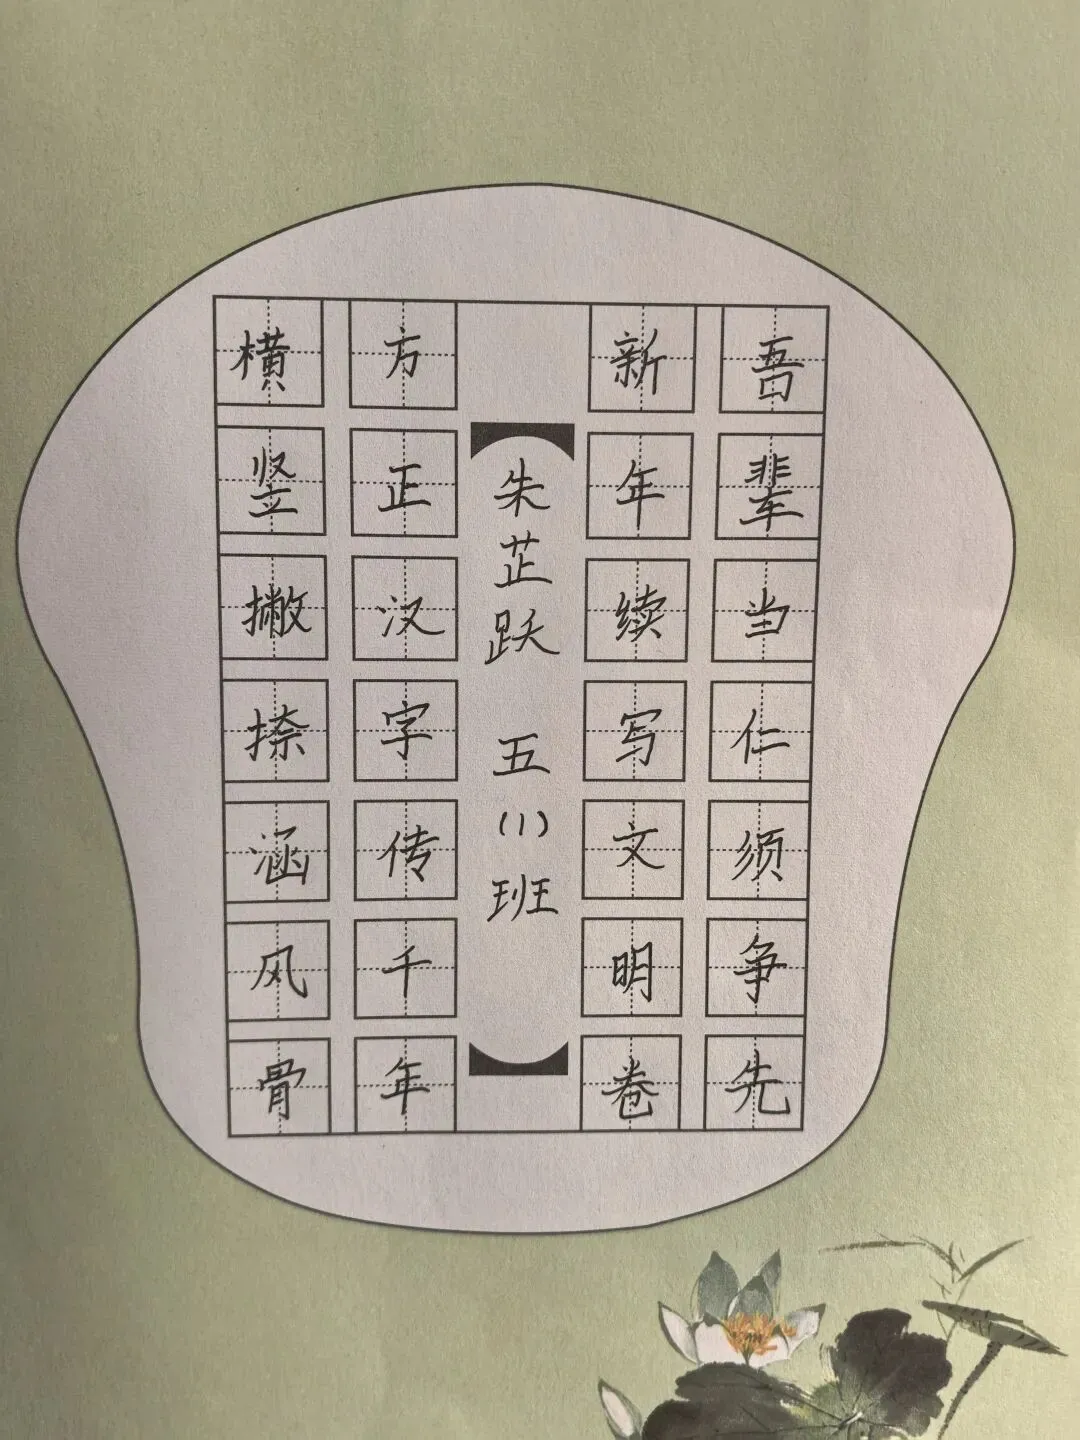 横竖撇捺涵风骨
方正汉字传千年
朱芷跃 五(1)班
新年续写文明卷
吾辈当仁须争先